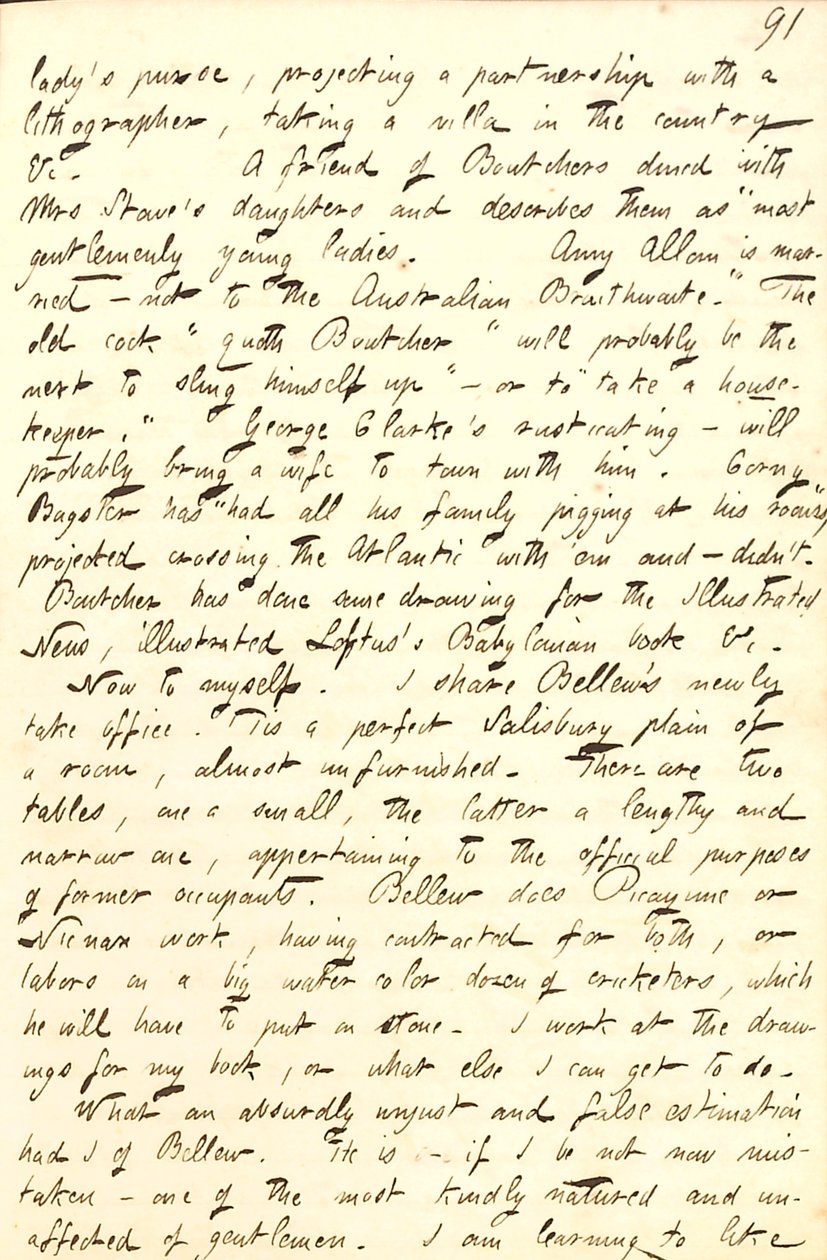 91
lady's purse, projecting a partnership with a
lithographer, taking a villa in the country
&c. A friend of Boutchers dined with
Mrs Stowe's daughters and describes them as "most
gentlemenly young ladies. Anny Allom is mar-
ried — not to "the Australian Braithwaite." "The
old cock" quoth Boutcher "will probably be the
next to sling himself up" — or to "take a house-
keeper." George Clarke's rusticating — will
probably bring a wife to town with him. Corny
Bagster has "had all his family pigging at his rooms,"
projected crossing the Atlantic with 'em and — didn't.
Boutcher has done some drawing for the Illustrated
News, illustrated Loftus's Babylonian book &c.
Now to myself. I share Bellew's newly
take office. 'Tis a perfect Salisbury plain of
a room, almost unfurnished. There are two
tables, one a small, the latter a lengthy and
narrow one, appertaining to the official purposes
of former occupants. Bellew does Picayune or
Nicnax work, having contracted for both, or
labors on a big water color dozen of cricketers, which
he will have to put on stone. I work at the draw-
ings for my book, or what else I can get to do.
What an absurdly unjust and false estimation
had I of Bellew. He is — if I be not now mis-
taken — one of the most kindly natured and un-
affected of gentlemen. I am learning to like